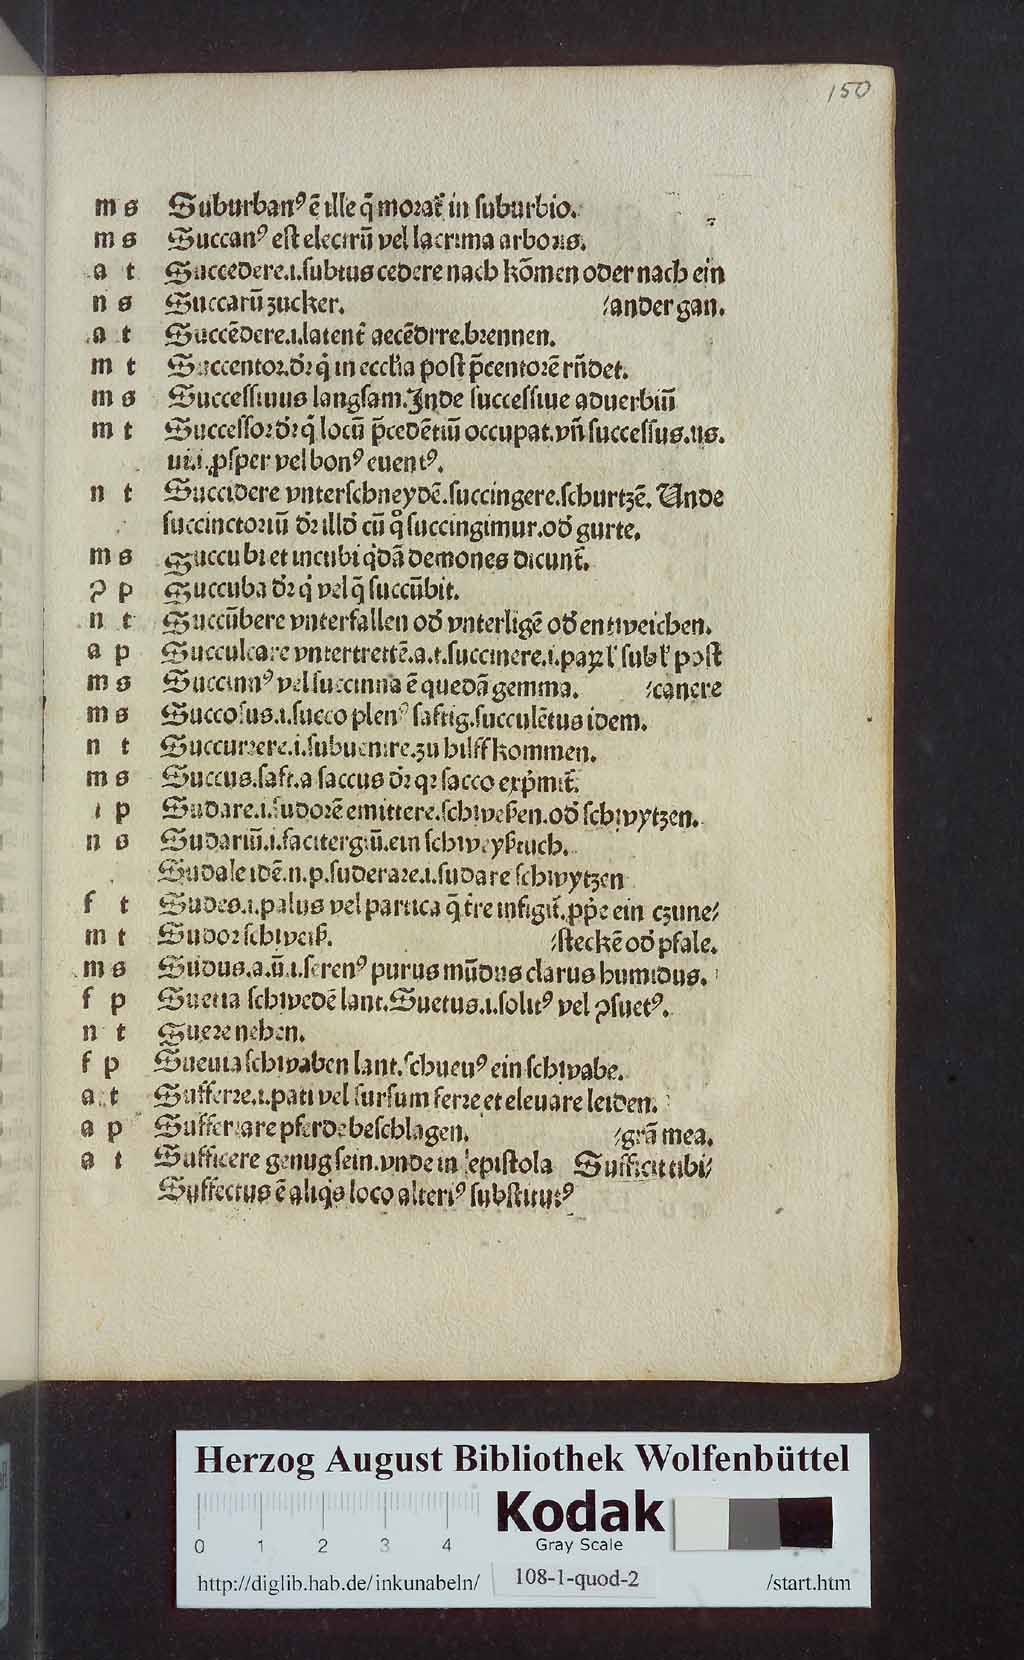 150
m s Suburbanꝰ ē ille q̄ morat᷑ in ſuburbio.
m s Succanꝰ eſt electrū vel lacrima arboris.
a t Succedere.i.ſubtus cedere nach kōmen oder nach ein
n s Succarū zucker. /ander gan.
a t Succēdere.i.latent᷑ accēdrre.brennen.
m t Succentor.dr̄ q̇ in eccl̄ia poſt p̄centorē rn̄det.
m s Succeſſiuus langſam.Inde ſucceſſiue aduerbiū
m t Succeſſor dr̄ q̇ locū p̄cedētiū occupat.vn̄ ſucceſſus.us.
ui.i.ꝓſper vel bonꝰ euentꝰ.
n t Succidere vnterſchneydē.ſuccingere.ſchurtzē. Unde
ſuccinctoriū dr̄ illd̓ cū qͦ ſuccingimur.od̓ gurte.
m s Succubi et incubi q̇dā demones dicunt᷑.
ꝯ p Succuba dr̄ q̇ vel q̄ ſuccūbit.
n t Succūbere vnterfallen od̓ vnterligē od̓ entweichen.
a p Succulcare vntertrettē.a.t.ſuccinere.i.paꝝ l̓ ſub l̓ poſt
m s Succinnꝰ vel ſuccinna ē quedā gemma. /canere
m s Succoſus.i.ſucco plenꝰ ſaftig.ſucculētus idem.
n t Succurrere.i.ſubuenire.zu hilff kommen.
m s Succus.ſaft.a ſaccus dr̄ qꝛ ſacco exp̄mit᷑.
i p Sudare.i.ſudorē emittere.ſchweßen.od̓ ſchwytzen.
n s Sudariū.i.facitergiū.ein ſchweyßtuch.
Sudale idē.n.p.ſuderare.i.ſudare ſchwytzen
f t Sudes.i.palus vel partica q̄ t̄re infigit᷑.ꝓp̄e ein czune/
m t Sudor ſchweiß. /ſteckē od̓ pfale.
m s Sudus.a.ū.i.ſerenꝰ purus mūdus clarus humidus.
f p Suetia ſchwedē lant.Suetus.i.ſolitꝰ vel ꝯſuetꝰ.
n t Suere nehen.
f p Sueuia ſchwaben lant.ſchueuꝰ ein ſchwabe.
a t Sufferre.i.pati vel ſurſum ferre et eleuare leiden.
a p Sufferrare pferde beſchlagen. /grā mea.
a t Sufficere genug ſein.vnde in epiſtola Sufficit tibi/
Suffectus ē aliq̇s loco alteriꝰ ſubſtitutꝰ
Herzog August Bibliothek Wolfenbüttel
0 1 2 3 4
Kodak
Gray Scale
http://diglib.hab.de/inkunabeln/ 108-1-quod-2 /start.htm